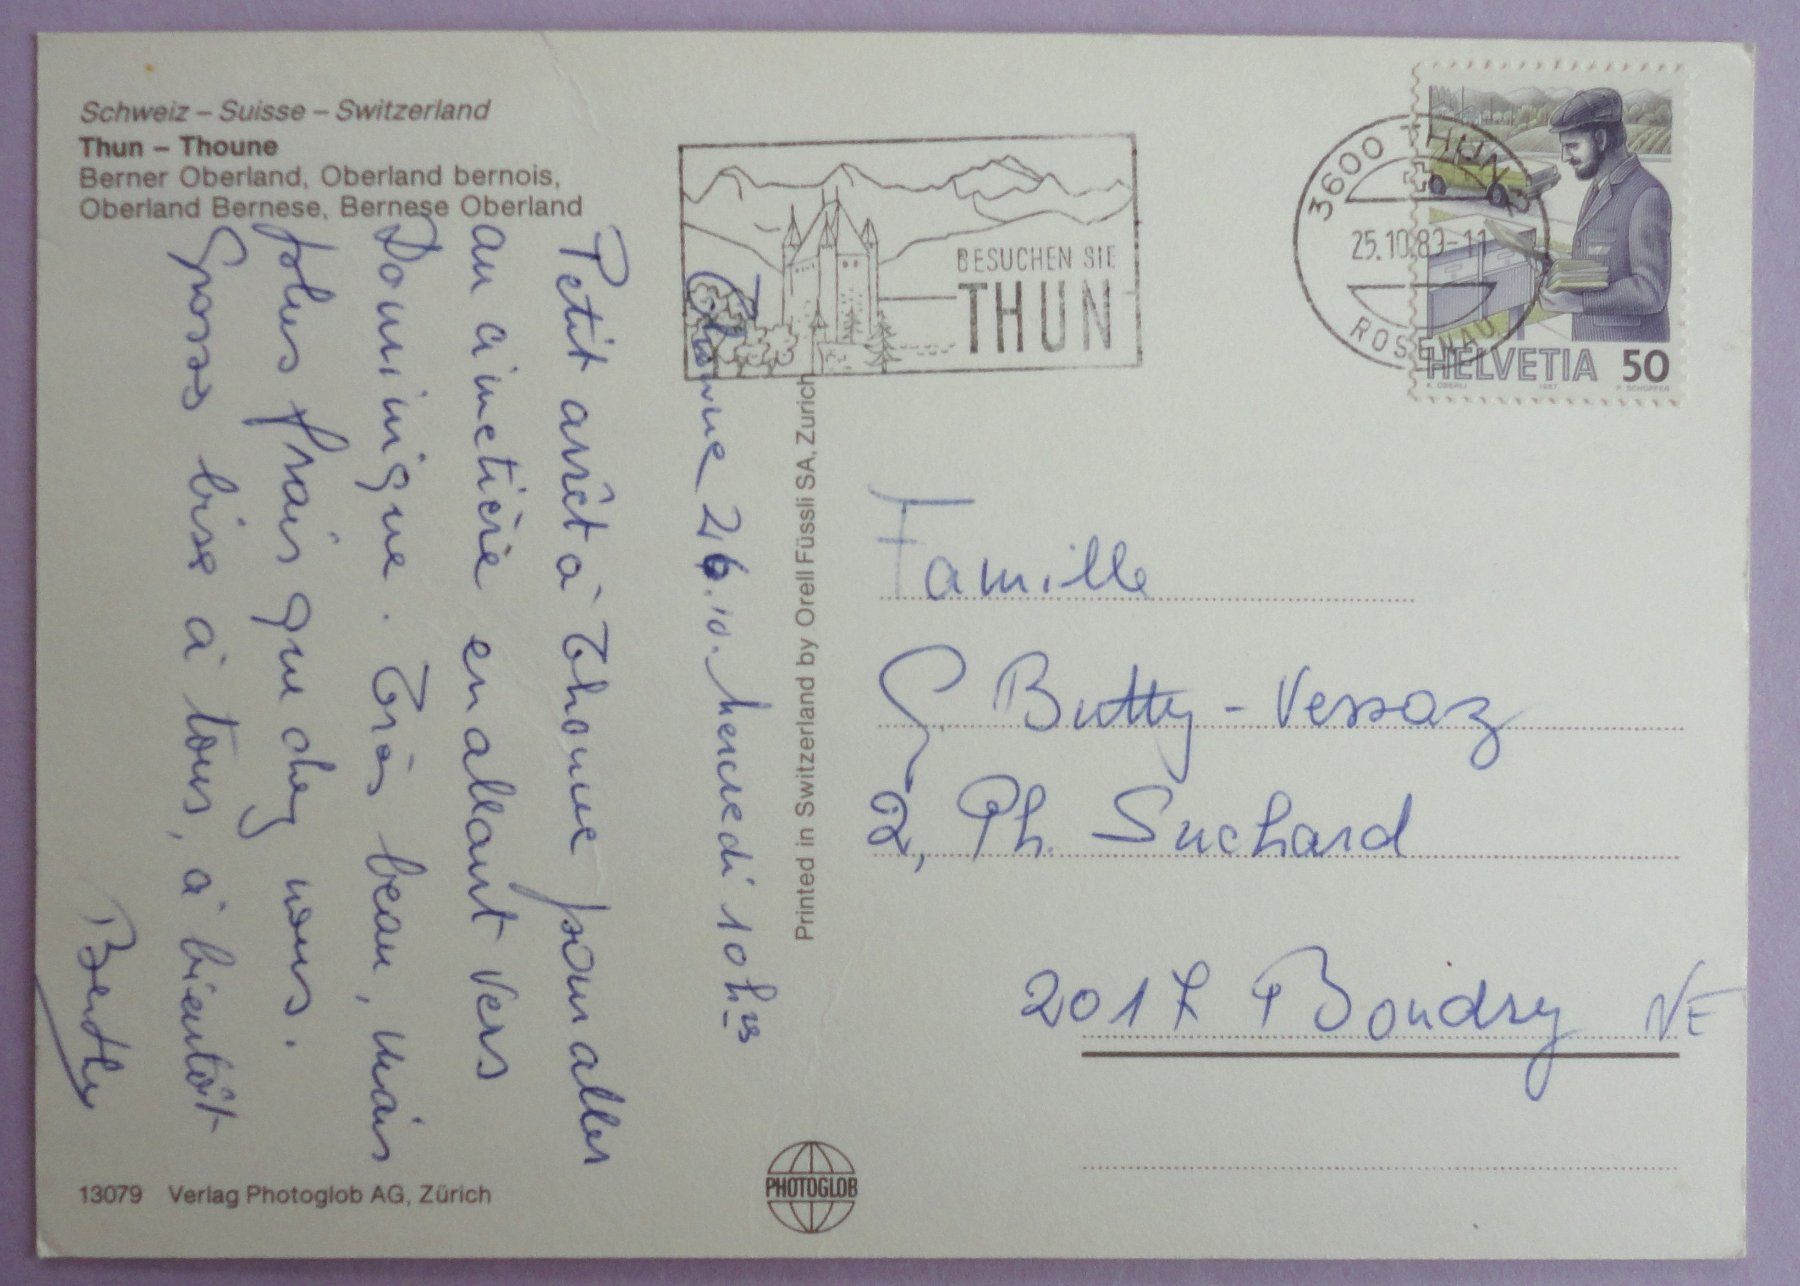 Schweiz – Suisse – Switzerland
Thun – Thoune
Berner Oberland, Oberland bernois,
Oberland Bernese, Bernese Oberland
BESUCHEN SIE
THUN
3600 THUN 3
25.10.89-11
ROSENAU
HELVETIA 50
K. OBERLI 1987 P. SCHOPFER
Thoune 26.10. mercredi 10h
Petit arrêt à Thoune pour aller
au cimetière en allant vers
Dominique. Très beau, mais
plus frais que chez nous.
Grosse bise à tous, à bientôt
Printed in Switzerland by Orell Füssli SA, Zurich
Famille
G. Butty - Vessaz
2, Ph. Suchard
2017 Boudry NE
13079 Verlag Photoglob AG, Zürich
PHOTOGLOB